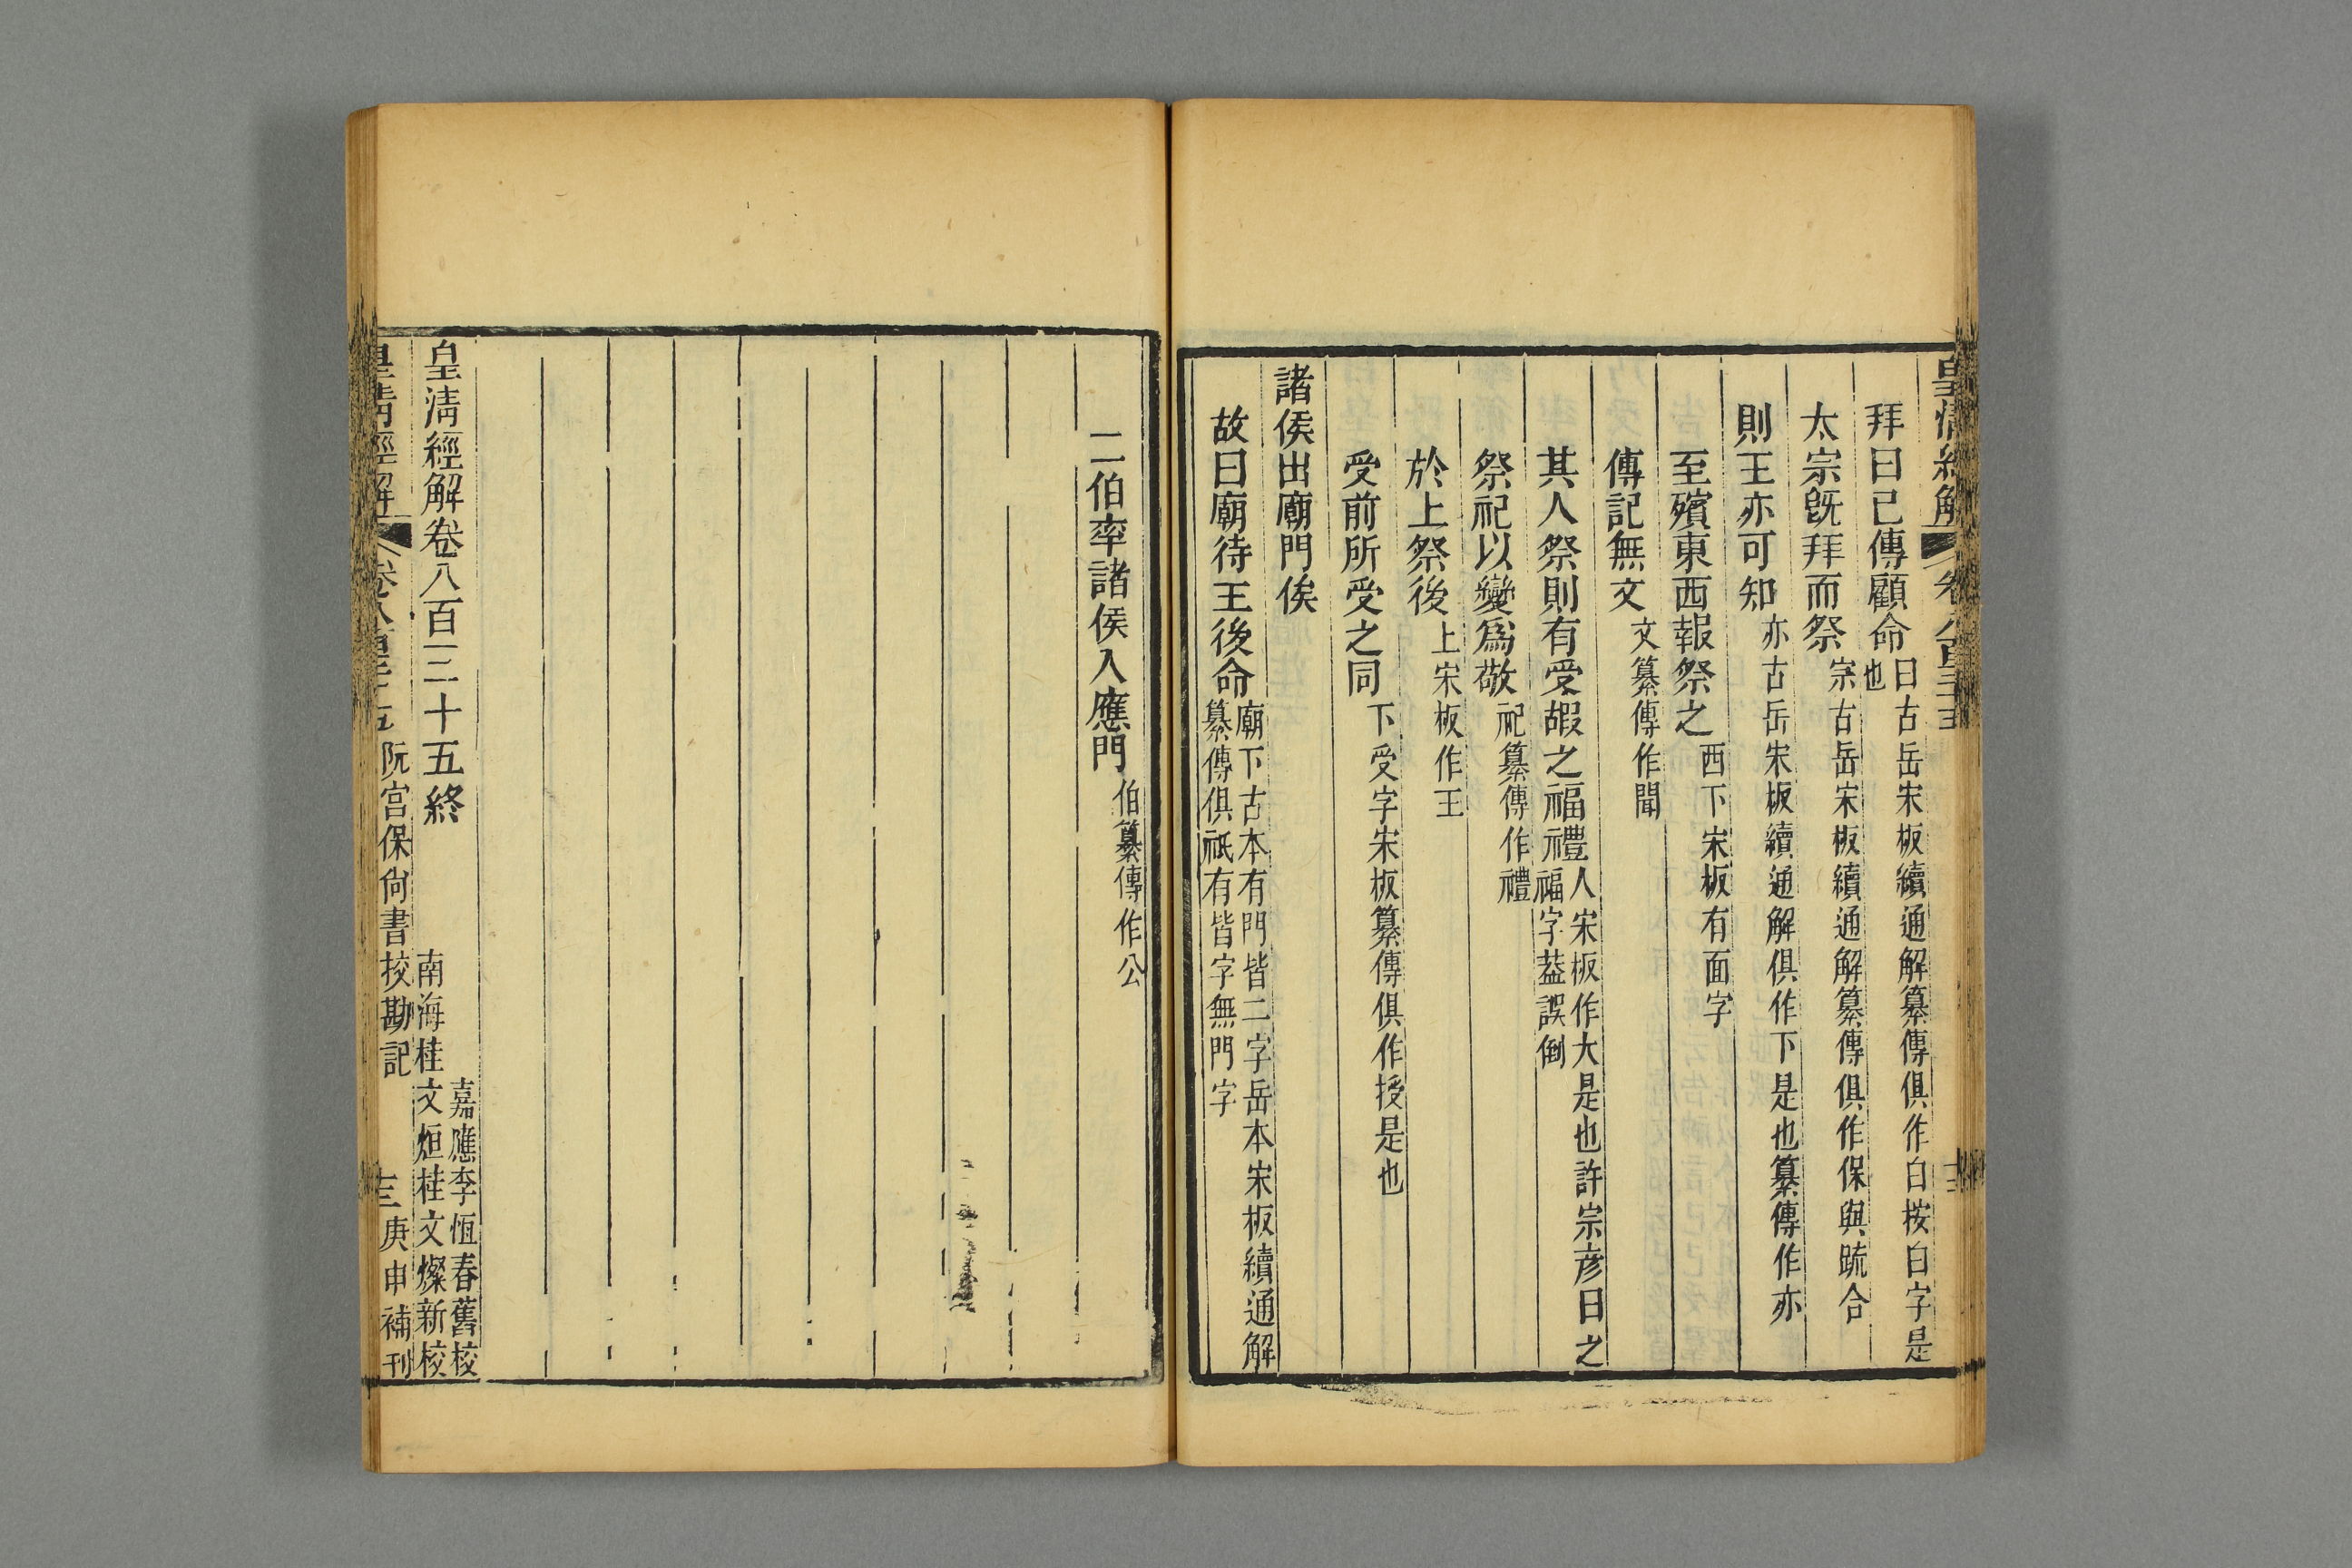 皇清經解 卷八百三十五 十三
拜曰已傳顧命 曰古岳宋板續通解纂傳俱作白按白字是也
太宗旣拜而祭 宗古岳宋板續通解纂傳俱作保與疏合
則王亦可知 亦古岳宋板續通解俱作下是也纂傳作亦
至殯東西報祭之 西下宋板有面字
傳記無文 文纂傳作聞
其人祭則有受嘏之福禮 人宋板作大是也許宗彥曰之福字葢誤倒
祭祀以變爲敬 祀纂傳作禮
於上祭後 上宋板作王
受前所受之同 下受字宋板纂傳俱作授是也
諸侯出廟門俟
故曰廟待王後命 廟下古本有門皆二字岳本宋板續通解纂傳俱祇有皆字無門字
二伯率諸侯入應門 伯纂傳作公
皇淸經解卷八百三十五終
嘉應李恆春舊校
南海桂文烜桂文燦新校
皇清經解 卷八百三十五 阮宮保尙書挍勘記 十三 庚申補刊